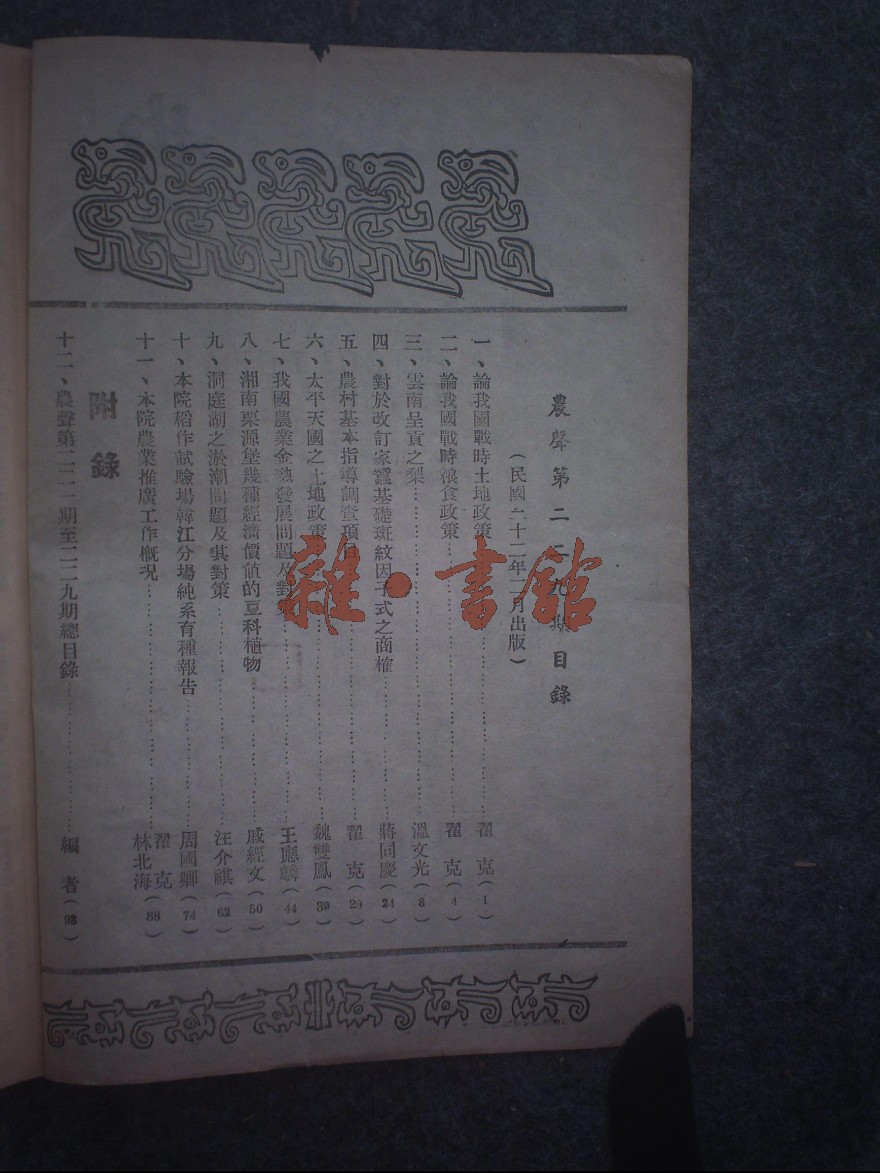 農聲第二二九期目錄
(民國三十二年二月出版)
一、論我國戰時土地政策……翟克(1)
二、論我國戰時粮食政策……翟克(4)
三、雲南呈貢之梨……溫文光(8)
四、對於改訂家蠶基礎斑紋因子式之商榷……蔣同慶(24)
五、農村基本指導調查項目……翟克(29)
六、太平天國之土地政策……魏雙鳳(39)
七、我國農業金融發展問題及對……王應麟(44)
八、湘南栗源堡幾種經濟價值的豆科植物……戚經文(50)
九、洞庭湖之淤潮問題及其對策……汪介祺(62)
十、本院稻作試驗塲韓江分塲純系育種報告……周國卿(74)
十一、本院農業推廣工作槪況……翟克 林北海(88)
附錄
十二、農聲第二二一期至二二九期總目錄……編者(98)
雜·書舘